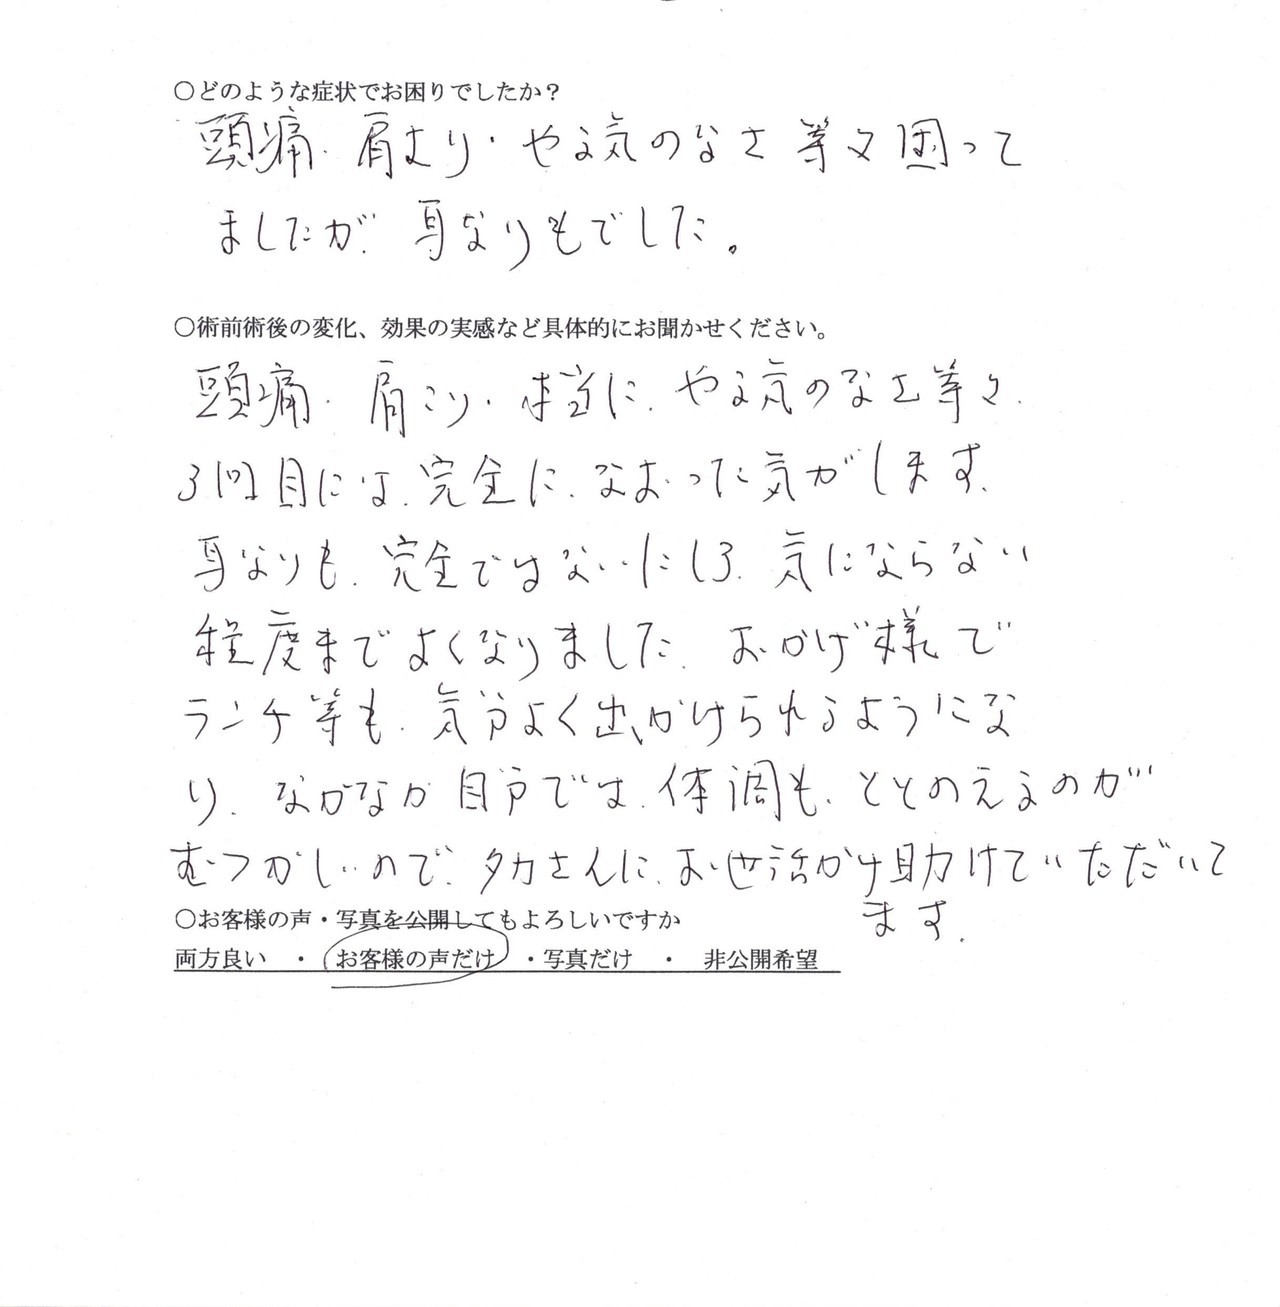 ○どのような症状でお困りでしたか？
頭痛・肩こり・やる気のなさ等々困って
ましたが、耳なりもでした。
○術前術後の変化、効果の実感など具体的にお聞かせください。
頭痛・肩こり・本当に、やる気のなさ等々、
3回目には、完全に、なおった気がします。
耳なりも、完全ではないにしろ、気にならない
程度までよくなりました。おかげ様で
ランチ等も、気分よく出かけられるようにな
り、なかなか自分では、体調も、ととのえるのが
むつかしいので、タカさんに、お世話かけ助けていただいて
ます。
○お客様の声・写真を公開してもよろしいですか
両方良い　・　お客様の声だけ　・写真だけ　・　非公開希望